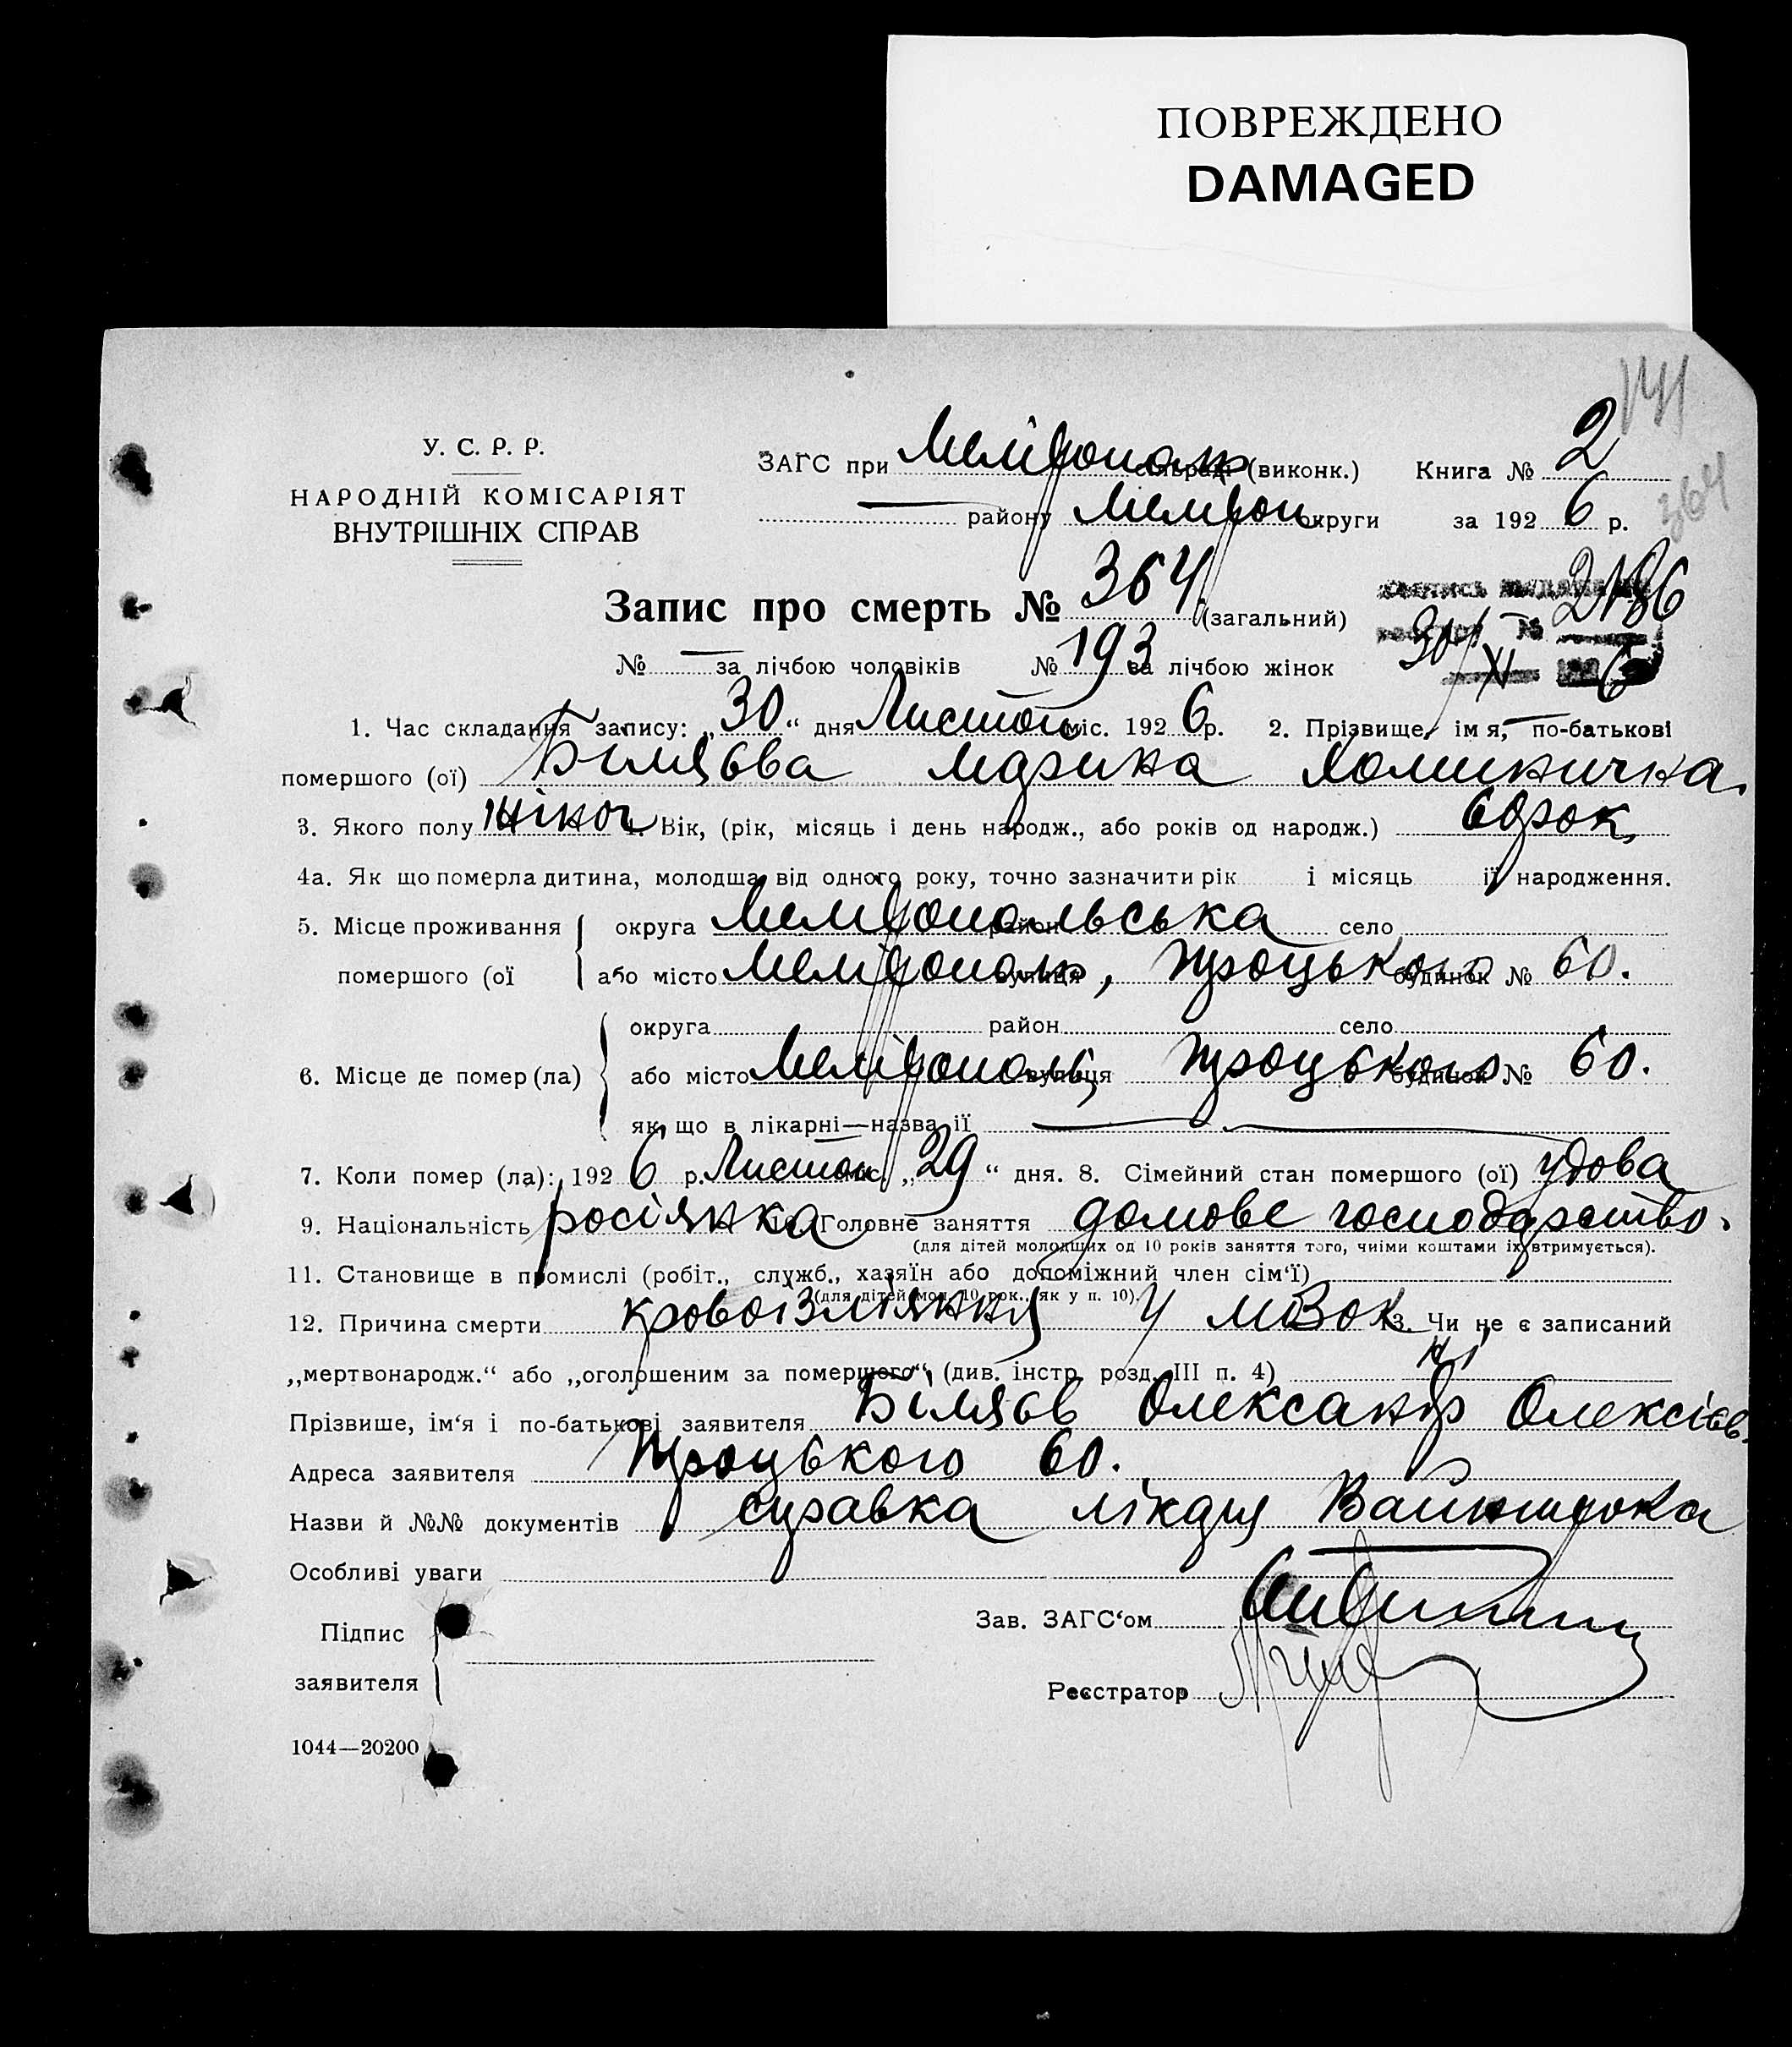 ПОВРЕЖДЕНО
DAMAGED
141
364
У. С. Р. Р.
НАРОДНІЙ КОМІСАРІЯТ
ВНУТРІШНІХ СПРАВ
ЗАГС при Мелітополь (виконк.) Книга № 2
району Мелітоп округи за 1926 р.
Запис про смерть № 364 (загальний)
2186
№ — за лічбою чоловіків № 193 за лічбою жінок
30/XI 6
1. Час складання запису: „30“ дня Листоп міс. 1926 р. 2. Прізвище, імя, по-батькові
помершого (ої) Біляєва Марина
3. Якого полу жіноч Вік, (рік, місяць і день народж., або років од народж.) 60 рок.
4а. Як що померла дитина, молодша від одного року, точно зазначити рік і місяць її народження.
5. Місце проживання округа Мелітопольська район село
помершого (ої або місто Мелітополь, вулиця Троцького будинок № 60.
округа район село
6. Місце де помер (ла) або місто Мелітополь, вулиця Троцького будинок № 60.
як що в лікарні—назва її —
7. Коли помер (ла): 1926 р. Листоп міс. „29“ дня. 8. Сімейний стан помершого (ої) удова
9. Національність росіянка 10. Головне заняття домове господарство.
(для дітей молодших од 10 років заняття того, чиіми коштами їх втримується).
11. Становище в промислі (робіт., служб., хазяїн або допоміжний член сім‘ї)
(для дітей мол. 10 рок., як у п. 10).
12. Причина смерти кровоізліяння у мозок 13. Чи не є записаний
„мертвонародж.“ або „оголошеним за помершого“, (див. інстр. розд. III п. 4) ні
Прізвише, ім‘я і по-батькові заявителя Біляєв Олександр Олексієв.
Адреса заявителя Троцького 60.
Назви й №№ документів справка лікаря
Особливі уваги
Підпис
заявителя
Зав. ЗАГС‘ом
Реєстратор
1044—20200